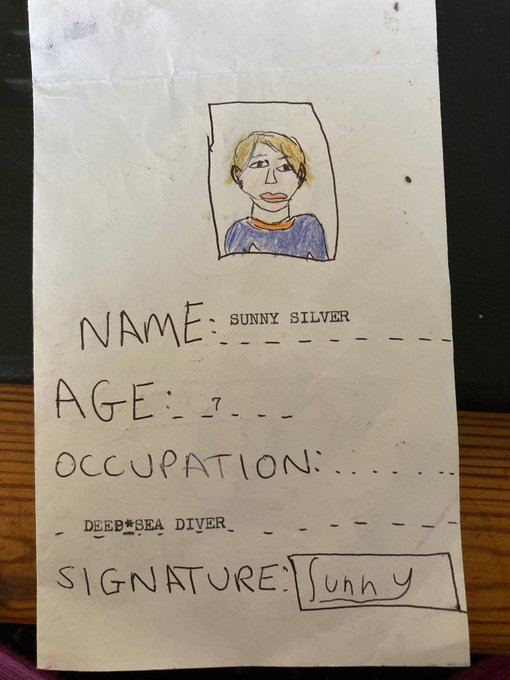 NAME: SUNNY SILVER
AGE: 7
OCCUPATION:
DEEP*SEA DIVER
SIGNATURE: Sunny